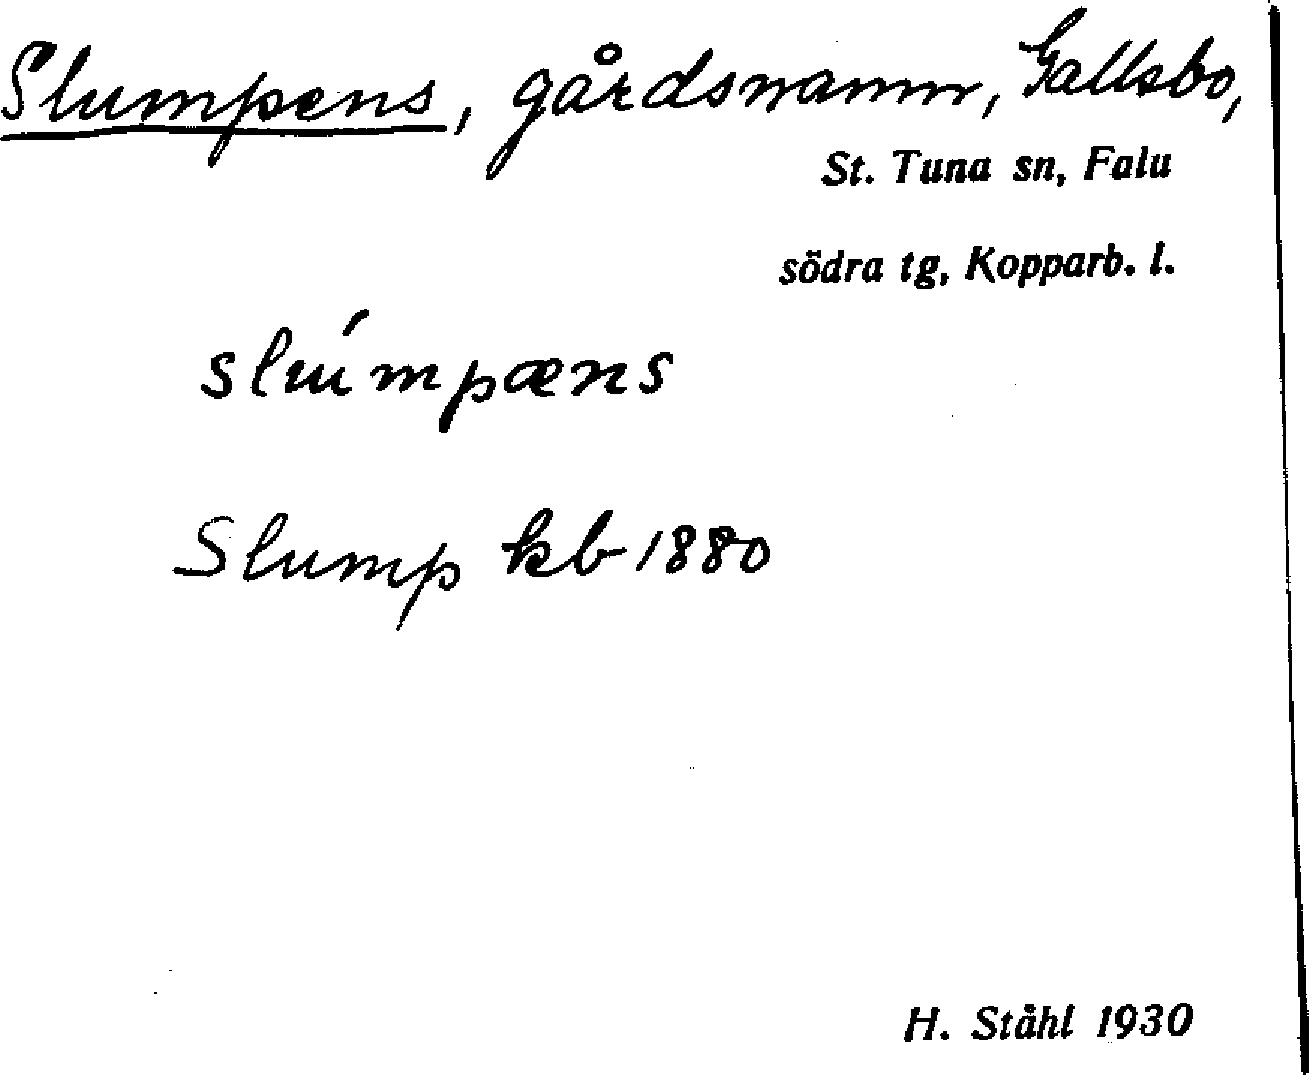 Slumpens, gårdsnamn, Gallsbo,
St. Tuna sn, Falu
södra tg, Kopparb. l.
slúmpæns
Slump kb 1880
H. Ståhl 1930